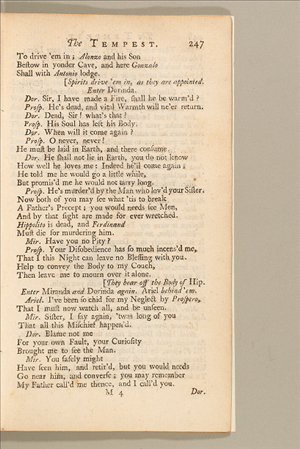 The TEMPEST. 247
To drive 'em in; Alonzo and his Son
Beſtow in yonder Cave, and here Gonzalo
Shall with Antonio lodge.
[Spirits drive 'em in, as they are appointed.
Enter Dorinda.
Dor. Sir, I have made a Fire, ſhall he be warm'd?
Proſp. He's dead, and vital Warmth will ne'er return.
Dor. Dead, Sir! what's that?
Proſp. His Soul has left his Body.
Dor. When will it come again?
Proſp. O never, never!
He muſt be laid in Earth, and there conſume.
Dor. He ſhall not lie in Earth, you do not know
How well he loves me: Indeed he'll come again;
He told me he would go a little while,
But promis'd me he would not tarry long.
Proſp. He's murder'd by the Man who lov'd your Siſter.
Now both of you may ſee what 'tis to break
A Father's Precept; you would needs ſee Men,
And by that ſight are made for ever wretched.
Hippolito is dead, and Ferdinand
Muſt die for murdering him.
Mir. Have you no Pity?
Proſp. Your Diſobedience has ſo much incens'd me,
That I this Night can leave no Bleſſing with you.
Help to convey the Body to my Couch,
Then leave me to mourn over it alone.
[They bear off the Body of Hip.
Enter Miranda and Dorinda again. Ariel behind 'em.
Ariel. I've been ſo chid for my Neglect by Proſpero,
That I muſt now watch all, and be unſeen.
Mir. Siſter, I ſay again, 'twas long of you
That all this Miſchief happen'd.
Dor. Blame not me
For your own Fault, your Curioſity
Brought me to ſee the Man.
Mir. You ſafely might
Have ſeen him, and retir'd, but you would needs
Go near him, and converſe; you may remember
My Father call'd me thence, and I call'd you.
M 4 Dor.